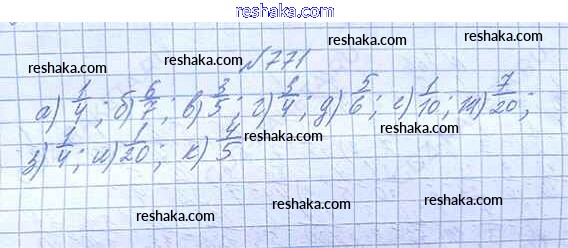 reshaka.com
reshaka.com
№771
reshaka.com
reshaka.com
а) 1/4; б) 6/7; в) 3/5; г) 3/4; д) 5/6; е) 1/10; ж) 7/20;
з) 1/4; и) 1/20; к) 4/5
reshaka.com
reshaka.com
reshaka.com
reshaka.com
reshaka.com